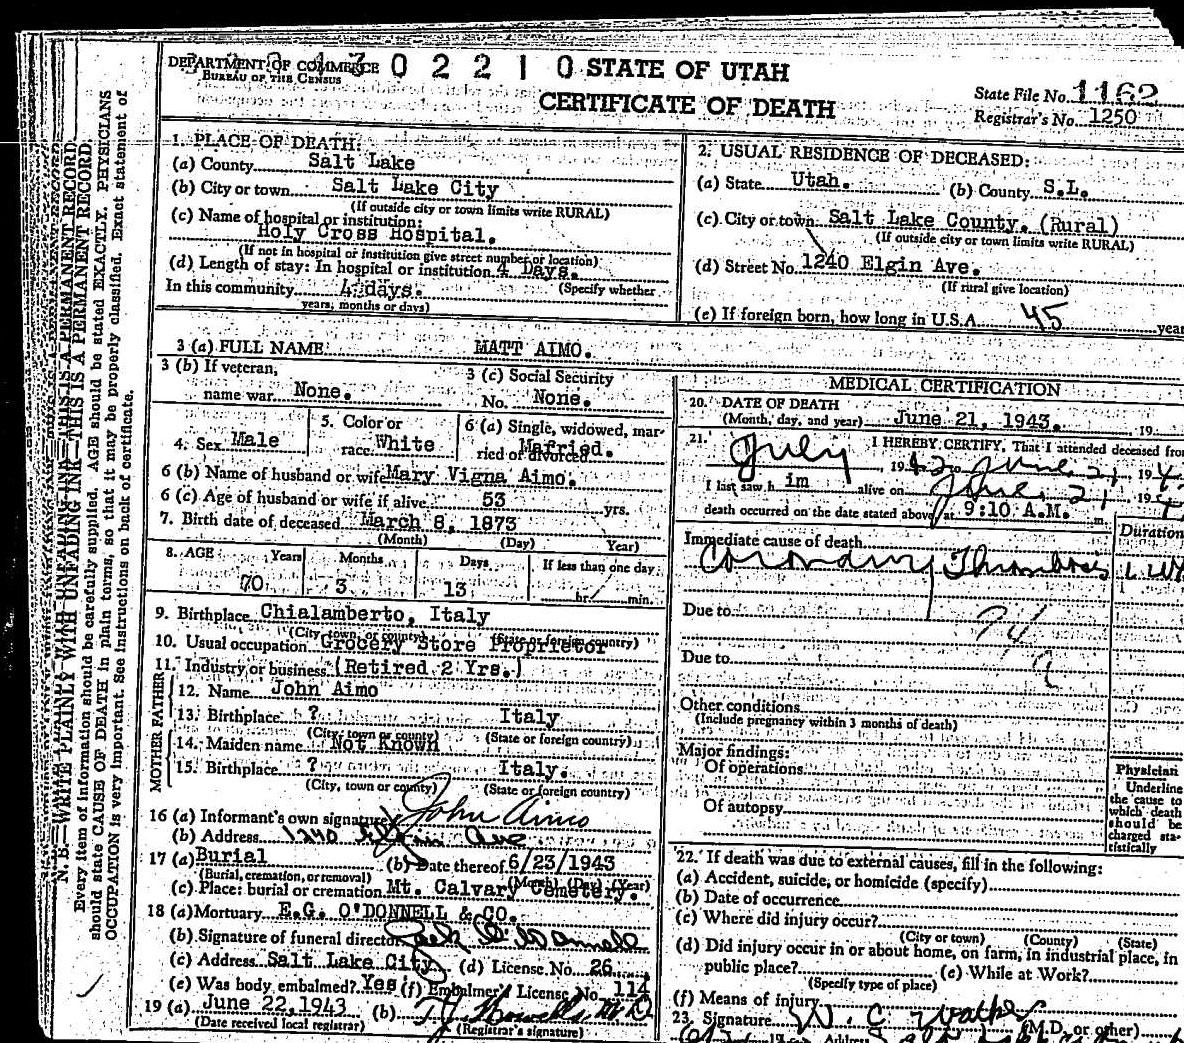 DEPARTMENT OF COMMERCE
BUREAU OF THE CENSUS
0 2 2 1 0
STATE OF UTAH
CERTIFICATE OF DEATH
State File No. 1162
Registrar's No. 1250
N. B.—WRITE PLAINLY WITH UNFADING INK—THIS IS A PERMANENT RECORD.
Every item of information should be carefully supplied. AGE should be stated EXACTLY. PHYSICIANS
should state CAUSE OF DEATH in plain terms, so that it may be properly classified. Exact statement of
OCCUPATION is very important. See instructions on back of certificate.
1. PLACE OF DEATH:
(a) County Salt Lake
(b) City or town Salt Lake City
(If outside city or town limits write RURAL)
(c) Name of hospital or institution:
Holy Cross Hospital.
(If not in hospital or institution give street number or location)
(d) Length of stay: In hospital or institution 4 Days.
In this community 4 days. (Specify whether
years, months or days)
2. USUAL RESIDENCE OF DECEASED:
(a) State Utah. (b) County S.L.
(c) City or town Salt Lake County. (Rural)
(If outside city or town limits write RURAL)
(d) Street No. 1240 Elgin Ave.
(If rural give location)
(e) If foreign born, how long in U.S.A. 45 year
3 (a) FULL NAME MATT AIMO.
3 (b) If veteran,
name war None.
3 (c) Social Security
No. None.
4. Sex Male
5. Color or
race White
6 (a) Single, widowed, mar-
ried or divorced Married.
6 (b) Name of husband or wife Mary Vigna Aimo.
6 (c) Age of husband or wife if alive 53 yrs.
7. Birth date of deceased March 8, 1873
(Month) (Day) Year)
8. AGE Years Months Days If less than one day
70 3 13 hr. min.
9. Birthplace Chialamberto, Italy
(City, town, or county) (State or foreign country)
10. Usual occupation Grocery Store Proprietor
11. Industry or business (Retired 2 Yrs.)
FATHER
12. Name John Aimo
13. Birthplace ? Italy
(City, town or county) (State or foreign country)
MOTHER
14. Maiden name Not Known
15. Birthplace ? Italy.
(City, town or county) (State or foreign country)
16 (a) Informant's own signature John Aimo
(b) Address 1240 Elgin Ave
17 (a) Burial (b) Date thereof 6/23/1943
(Burial, cremation, or removal) (Month) (Day) (Year)
(c) Place: burial or cremation Mt. Calvary Cemetery.
18 (a) Mortuary E.G. O'DONNELL & CO.
(b) Signature of funeral director
(c) Address Salt Lake City (d) License No. 26
(e) Was body embalmed? Yes (f) Embalmer's License No. 114
19 (a) June 22, 1943 (b)
(Date received local registrar) (Registrar's signature)
MEDICAL CERTIFICATION
20. DATE OF DEATH
(Month, day, and year) June 21, 1943. 19
21. I HEREBY CERTIFY, That I attended deceased from
July, 1942 to June 21, 194
I last saw him alive on June 21, 19
death occurred on the date stated above at 9:10 A.M. m.
Duration
Immediate cause of death
Coronary Thrombosis 1 wk
Due to
Due to
Other conditions
(Include pregnancy within 3 months of death)
Major findings:
Of operations
Of autopsy
Physician
Underline
the cause to
which death
should be
charged sta-
tistically
22. If death was due to external causes, fill in the following:
(a) Accident, suicide, or homicide (specify)
(b) Date of occurrence
(c) Where did injury occur?
(City or town) (County) (State)
(d) Did injury occur in or about home, on farm, in industrial place, in
public place? (e) While at Work?
(Specify type of place)
(f) Means of injury
23. Signature W. C. Walker (M.D. or other)
Address